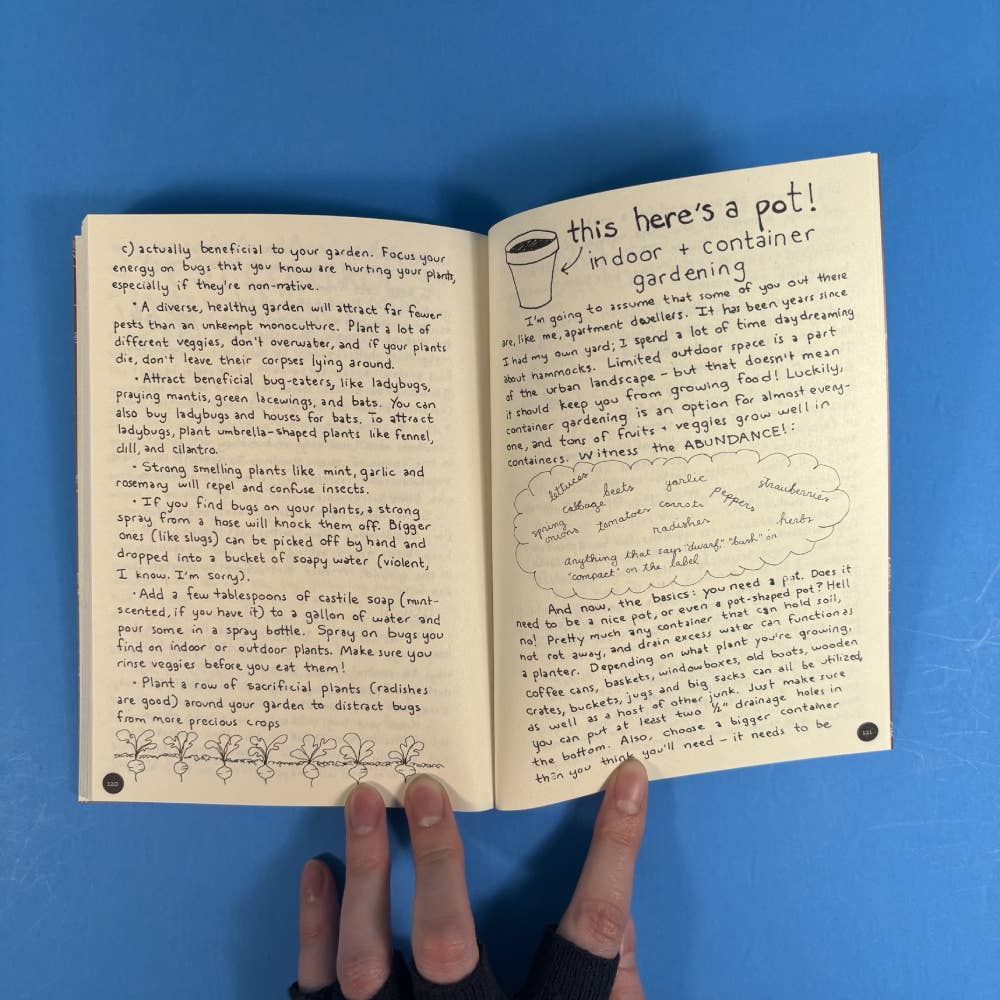 c) actually beneficial to your garden. Focus your
energy on bugs that you know are hurting your plants,
especially if they're non-native.
• A diverse, healthy garden will attract far fewer
pests than an unkempt monoculture. Plant a lot of
different veggies, don't overwater, and if your plants
die, don't leave their corpses lying around.
• Attract beneficial bug-eaters, like ladybugs,
praying mantis, green lacewings, and bats. You can
also buy ladybugs and houses for bats. To attract
ladybugs, plant umbrella-shaped plants like fennel,
dill, and cilantro.
• Strong smelling plants like mint, garlic and
rosemary will repel and confuse insects.
• If you find bugs on your plants, a strong
spray from a hose will knock them off. Bigger
ones (like slugs) can be picked off by hand and
dropped into a bucket of soapy water (violent,
I know. I'm sorry).
• Add a few tablespoons of castile soap (mint-
scented, if you have it) to a gallon of water and
pour some in a spray bottle. Spray on bugs you
find on indoor or outdoor plants. Make sure you
rinse veggies before you eat them!
• Plant a row of sacrificial plants (radishes
are good) around your garden to distract bugs
from more precious crops
120
this here's a pot!
indoor + container
gardening
I'm going to assume that some of you out there
are, like me, apartment dwellers. It has been years since
I had my own yard; I spend a lot of time daydreaming
about hammocks. Limited outdoor space is a part
of the urban landscape - but that doesn't mean
it should keep you from growing food! Luckily,
container gardening is an option for almost every-
one, and tons of fruits + veggies grow well in
containers. Witness the ABUNDANCE!:
lettuces beets garlic strawberries
cabbage peppers
spring onions tomatoes carrots
radishes herbs
anything that says "dwarf," "bush" or
"compact" on the label
And now, the basics: you need a pot. Does it
need to be a nice pot, or even a pot-shaped pot? Hell
no! Pretty much any container that can hold soil,
not rot away, and drain excess water can function as
a planter. Depending on what plant you're growing,
coffee cans, baskets, windowboxes, old boots, wooden
crates, buckets, jugs and big sacks can all be utilized,
as well as a host of other junk. Just make sure
you can put at least two ½" drainage holes in
the bottom. Also, choose a bigger container
than you think you'll need - it needs to be
121